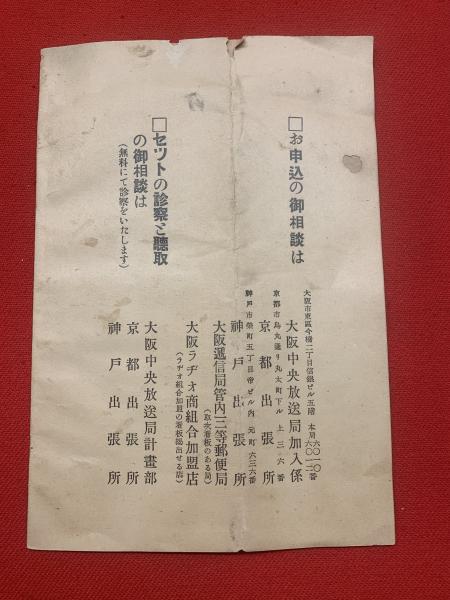 □お申込の御相談は
大阪市東區今橋二丁目信銀ビル五階 本局六〇一〇番 六〇一二番
大阪中央放送局加入係
京都市烏丸通リ丸太町下ル 上三六番
京都出張所
神戸市榮町五丁目帝ビル内 元町六三六番
神戸出張所
大阪遞信局管内三等郵便局
(取次看板のある局)
大阪ラヂオ商組合加盟店
(ラヂオ組合加盟の看板掲出せる店)
□セツトの診察と聽取
の御相談は
(無料にて診察をいたします)
大阪中央放送局計畫部
京都出張所
神戸出張所